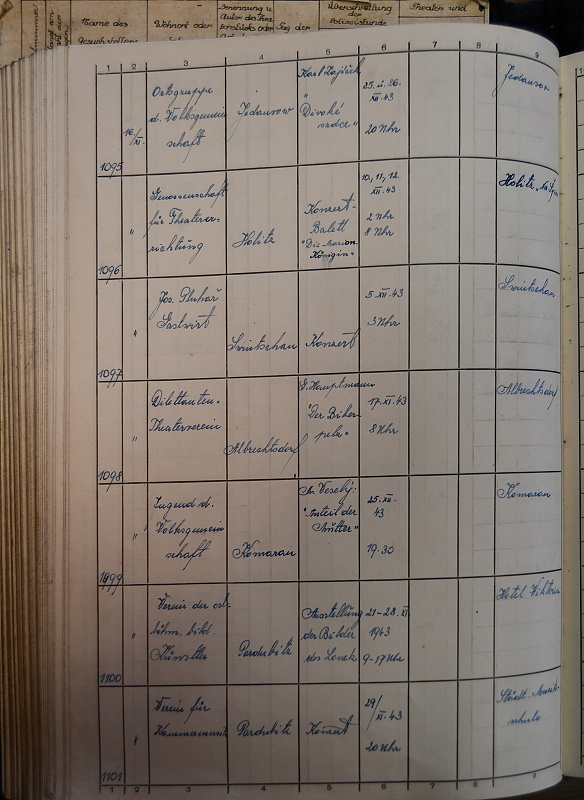 Name des
Wohnort oder
Benennung u.
Tag der
Überschreitung
der
Polizeistunde
Theaters und
1 2 3 4 5 6 7 8 9
1095
16/XI.
Ortsgruppe
d. Volksgemein
schaft
Jedausow
Karl Zajíček
"Divoké
srdce"
25. u. 26.
XII. 43
20 Uhr
Jedausow
1096
"
Genossenschaft
für Theaterer-
richtung
Holitz
Konzert-
Balett
"Die Marion.
Königin"
10, 11, 12.
XII. 43
2 Uhr
8 Uhr
Holitz
1097
"
Jos. Pluhař
Gastwirt
Switschan
Konzert
5. XII. 43
3 Uhr
Switschan
1098
"
Dilettanten-
Theaterverein
Albrechtsdorf
G. Hauptmann
"Der Biber
pelz"
17. XI. 43
8 Uhr
Albrechtsdorf
1099
"
Jugend d.
Volksgemein
schaft
Komarau
Veselý:
"Anteil der
Mutter"
25. XII.
43
19.30
Komarau
1100
"
Verein der ost-
böhm. bild.
Künstler
Pardubitz
Ausstellung
der Bilder
des
21-28. XI.
1943
9-17 Uhr
Hotel Viktoria
1101
"
Verein für
Kammermusik
Pardubitz
Konzert
29/
XI. 43
20 Uhr
Städt. Musik
schule
1 2 3 4 5 6 7 8 9